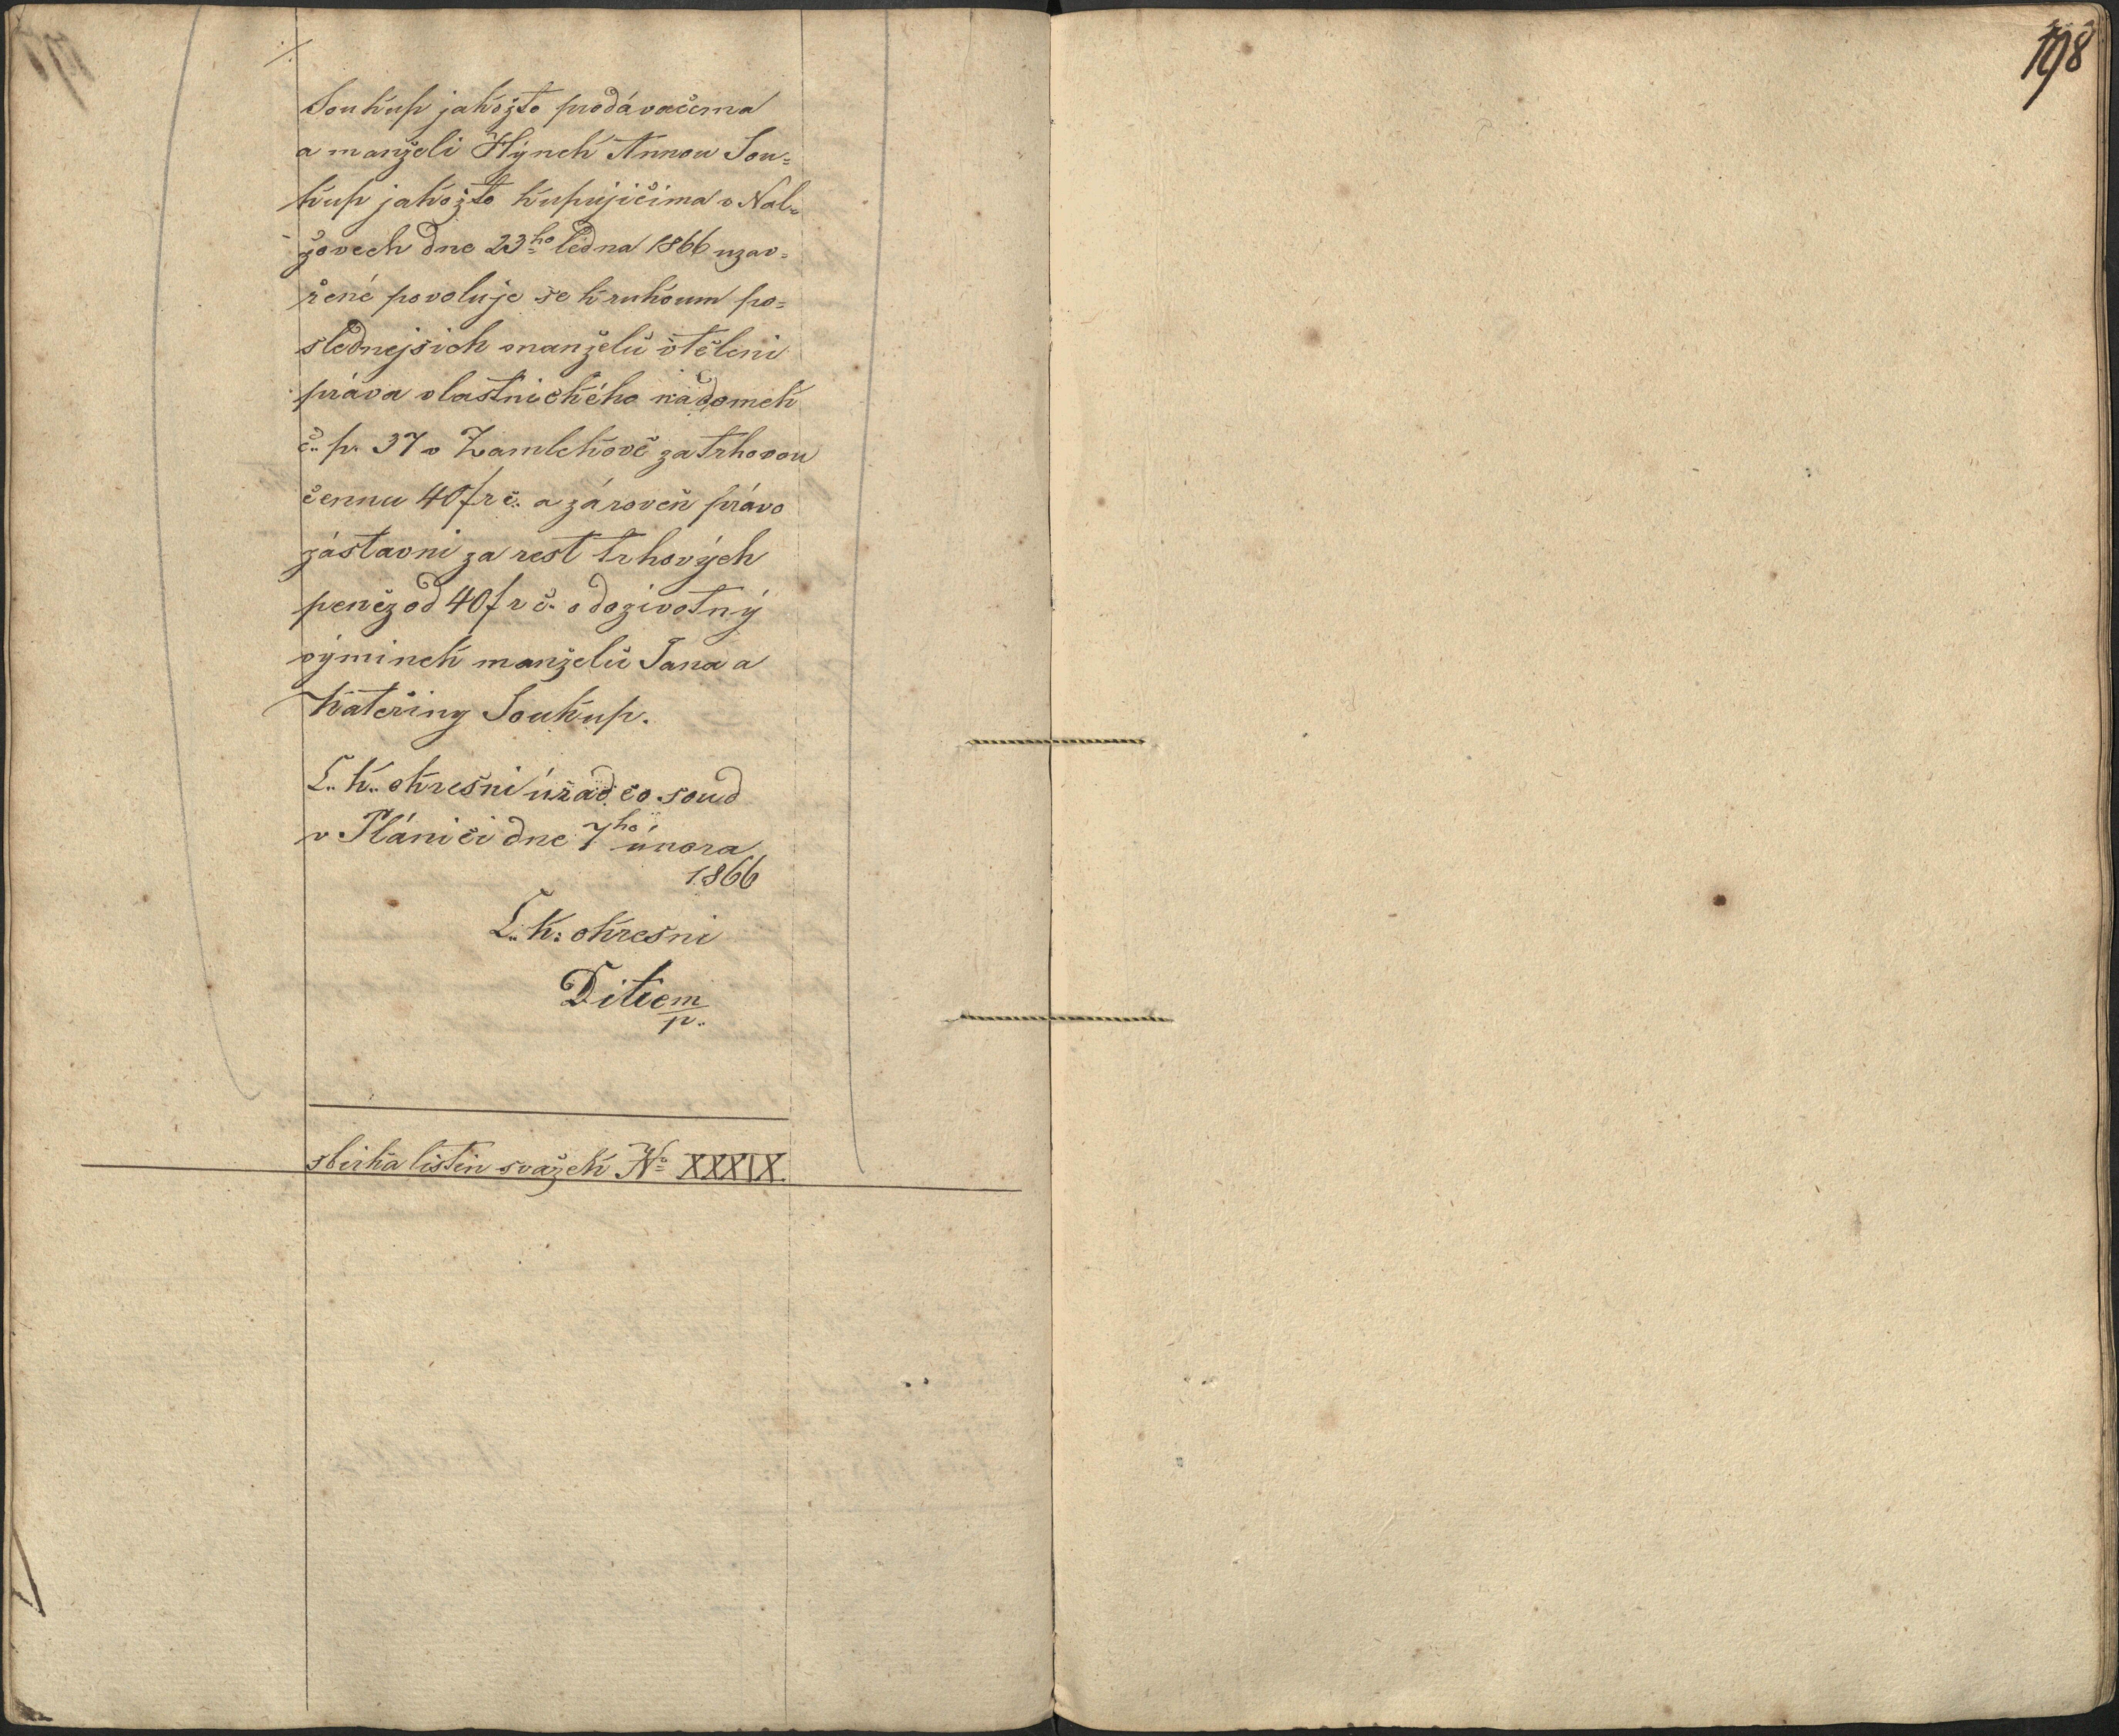 ./.
Soukup jakožto prodávačema
a manželi Hynek Annou Sou=
kup jakožto kupujičima v Nal=
žovech dne 23ho ledna 1866 uzav=
řené povoluje se k rukoum po=
slednejsich manželů vtěleni
práva vlastnického na domek
č. p. 37 v Zamlekově za trhovou
cennu 40 fr č. a zároveň právo
zástavni za rest trhových
peněz od 40 fr č. a dozivotný
výminek manželů Jana a
Kateřiny Soukup.
C. k. okresni úřad co soud
v Plánici dne 7ho února
1866
C. k. okresni
m/p.
sbirka listin svazek No XXXIX.
198